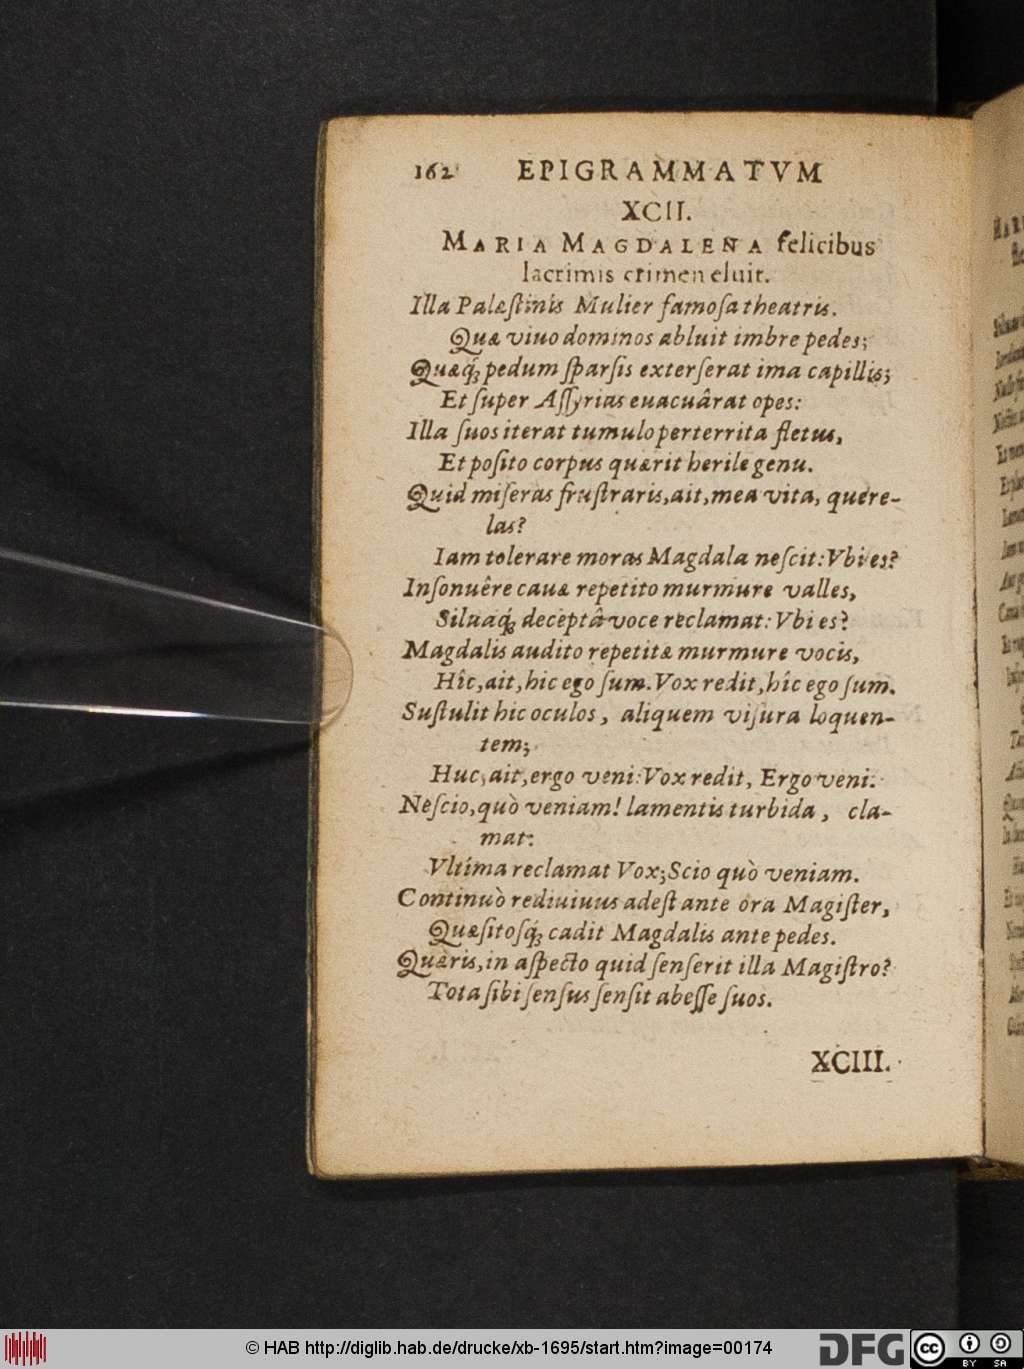 162 EPIGRAMMATVM
XCII.
MARIA MAGDALENA felicibus
lacrimis crimen eluit.
Illa Palæſtinis Mulier famoſa theatris.
Quæ viuo dominos abluit imbre pedes;
Quæq́; pedum ſparſis exterſerat ima capillis;
Et ſuper Aſſyrias euacuârat opes:
Illa ſuos iterat tumulo perterrita fletus,
Et poſito corpus quærit herile genu.
Quid miſeras fruſtraris, ait, mea vita, quere-
las?
Iam tolerare moras Magdala neſcit: Vbi es?
Inſonuêre cauæ repetito murmure valles,
Siluaq́; deceptâ voce reclamat: Vbi es?
Magdalis audito repetitæ murmure vocis,
Hîc, ait, hic ego ſum. Vox redit, hîc ego ſum.
Suſtulit hic oculos, aliquem viſura loquen-
tem;
Huc, ait, ergo veni: Vox redit, Ergo veni.
Neſcio, quò veniam! lamentis turbida, cla-
mat:
Vltima reclamat Vox; Scio quò veniam.
Continuò rediuiuus adeſt ante ora Magiſter,
Quæſitoſq́; cadit Magdalis ante pedes.
Quæris, in aſpecto quid ſenſerit illa Magiſtro?
Tota ſibi ſenſus ſenſit abeſſe ſuos.
XCIII.
© HAB http://diglib.hab.de/drucke/xb-1695/start.htm?image=00174
DFG
cc
BY SA